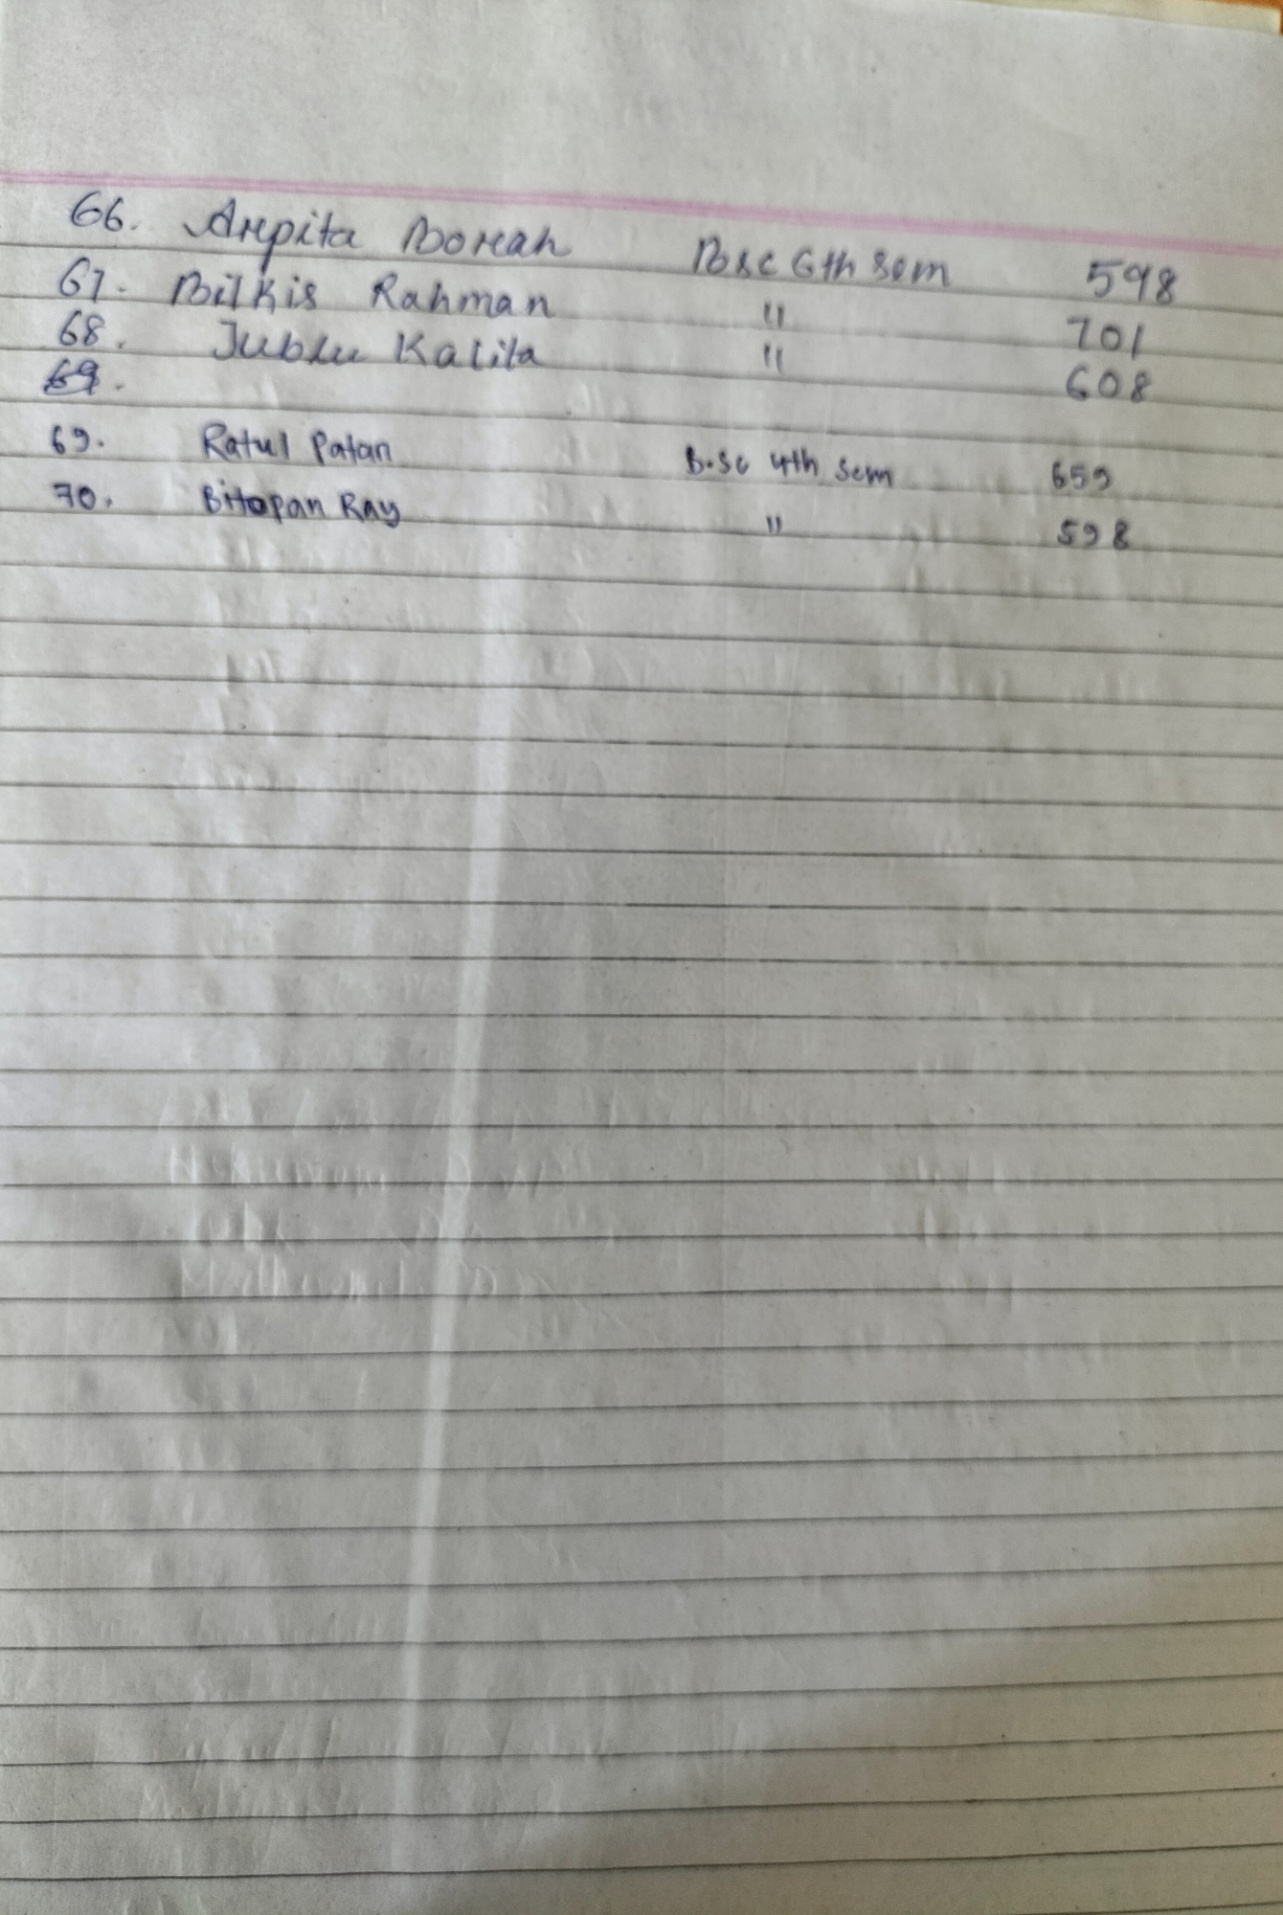 66. Arpita Borah Bsc 6th sem 598
67. Bilkis Rahman " 701
68. Jublu Kalita " 608
69.
69. Ratul Patan B.Sc 4th sem 659
70. Bitopan Ray " 598